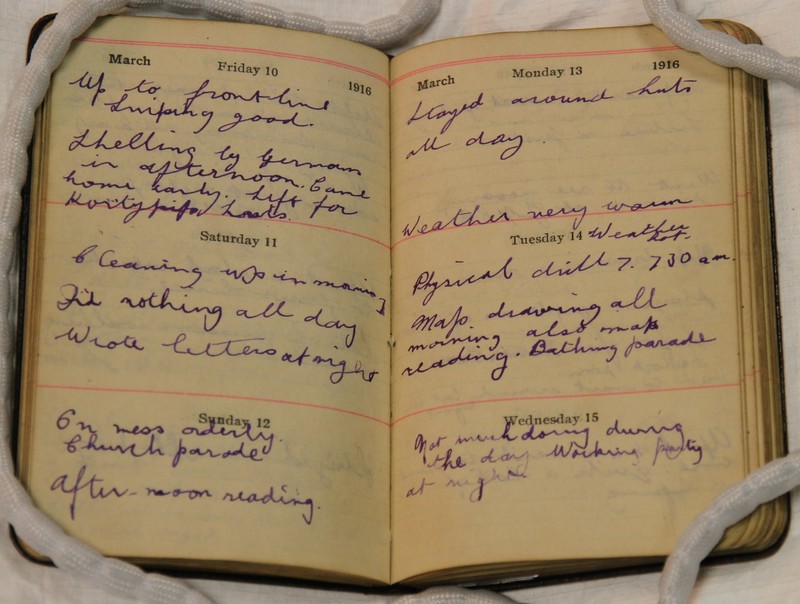 March Friday 10 1916
Up to front line
Sniping good.
Shelling by Germans
in afternoon. Came
home early. Left for
Kortypip huts.
Saturday 11
Cleaning up in morning
Did nothing all day
Wrote letters at night
Sunday 12
On mess orderly.
Church parade
After-noon reading.
March Monday 13 1916
Stayed around huts
all day.
Weather very warm
Tuesday 14 Weather
hot.
Physical drill 7. 730 am.
Map drawing all
morning also map
reading. Bathing parade
Wednesday 15
Not much doing during
the day Working party
at night.